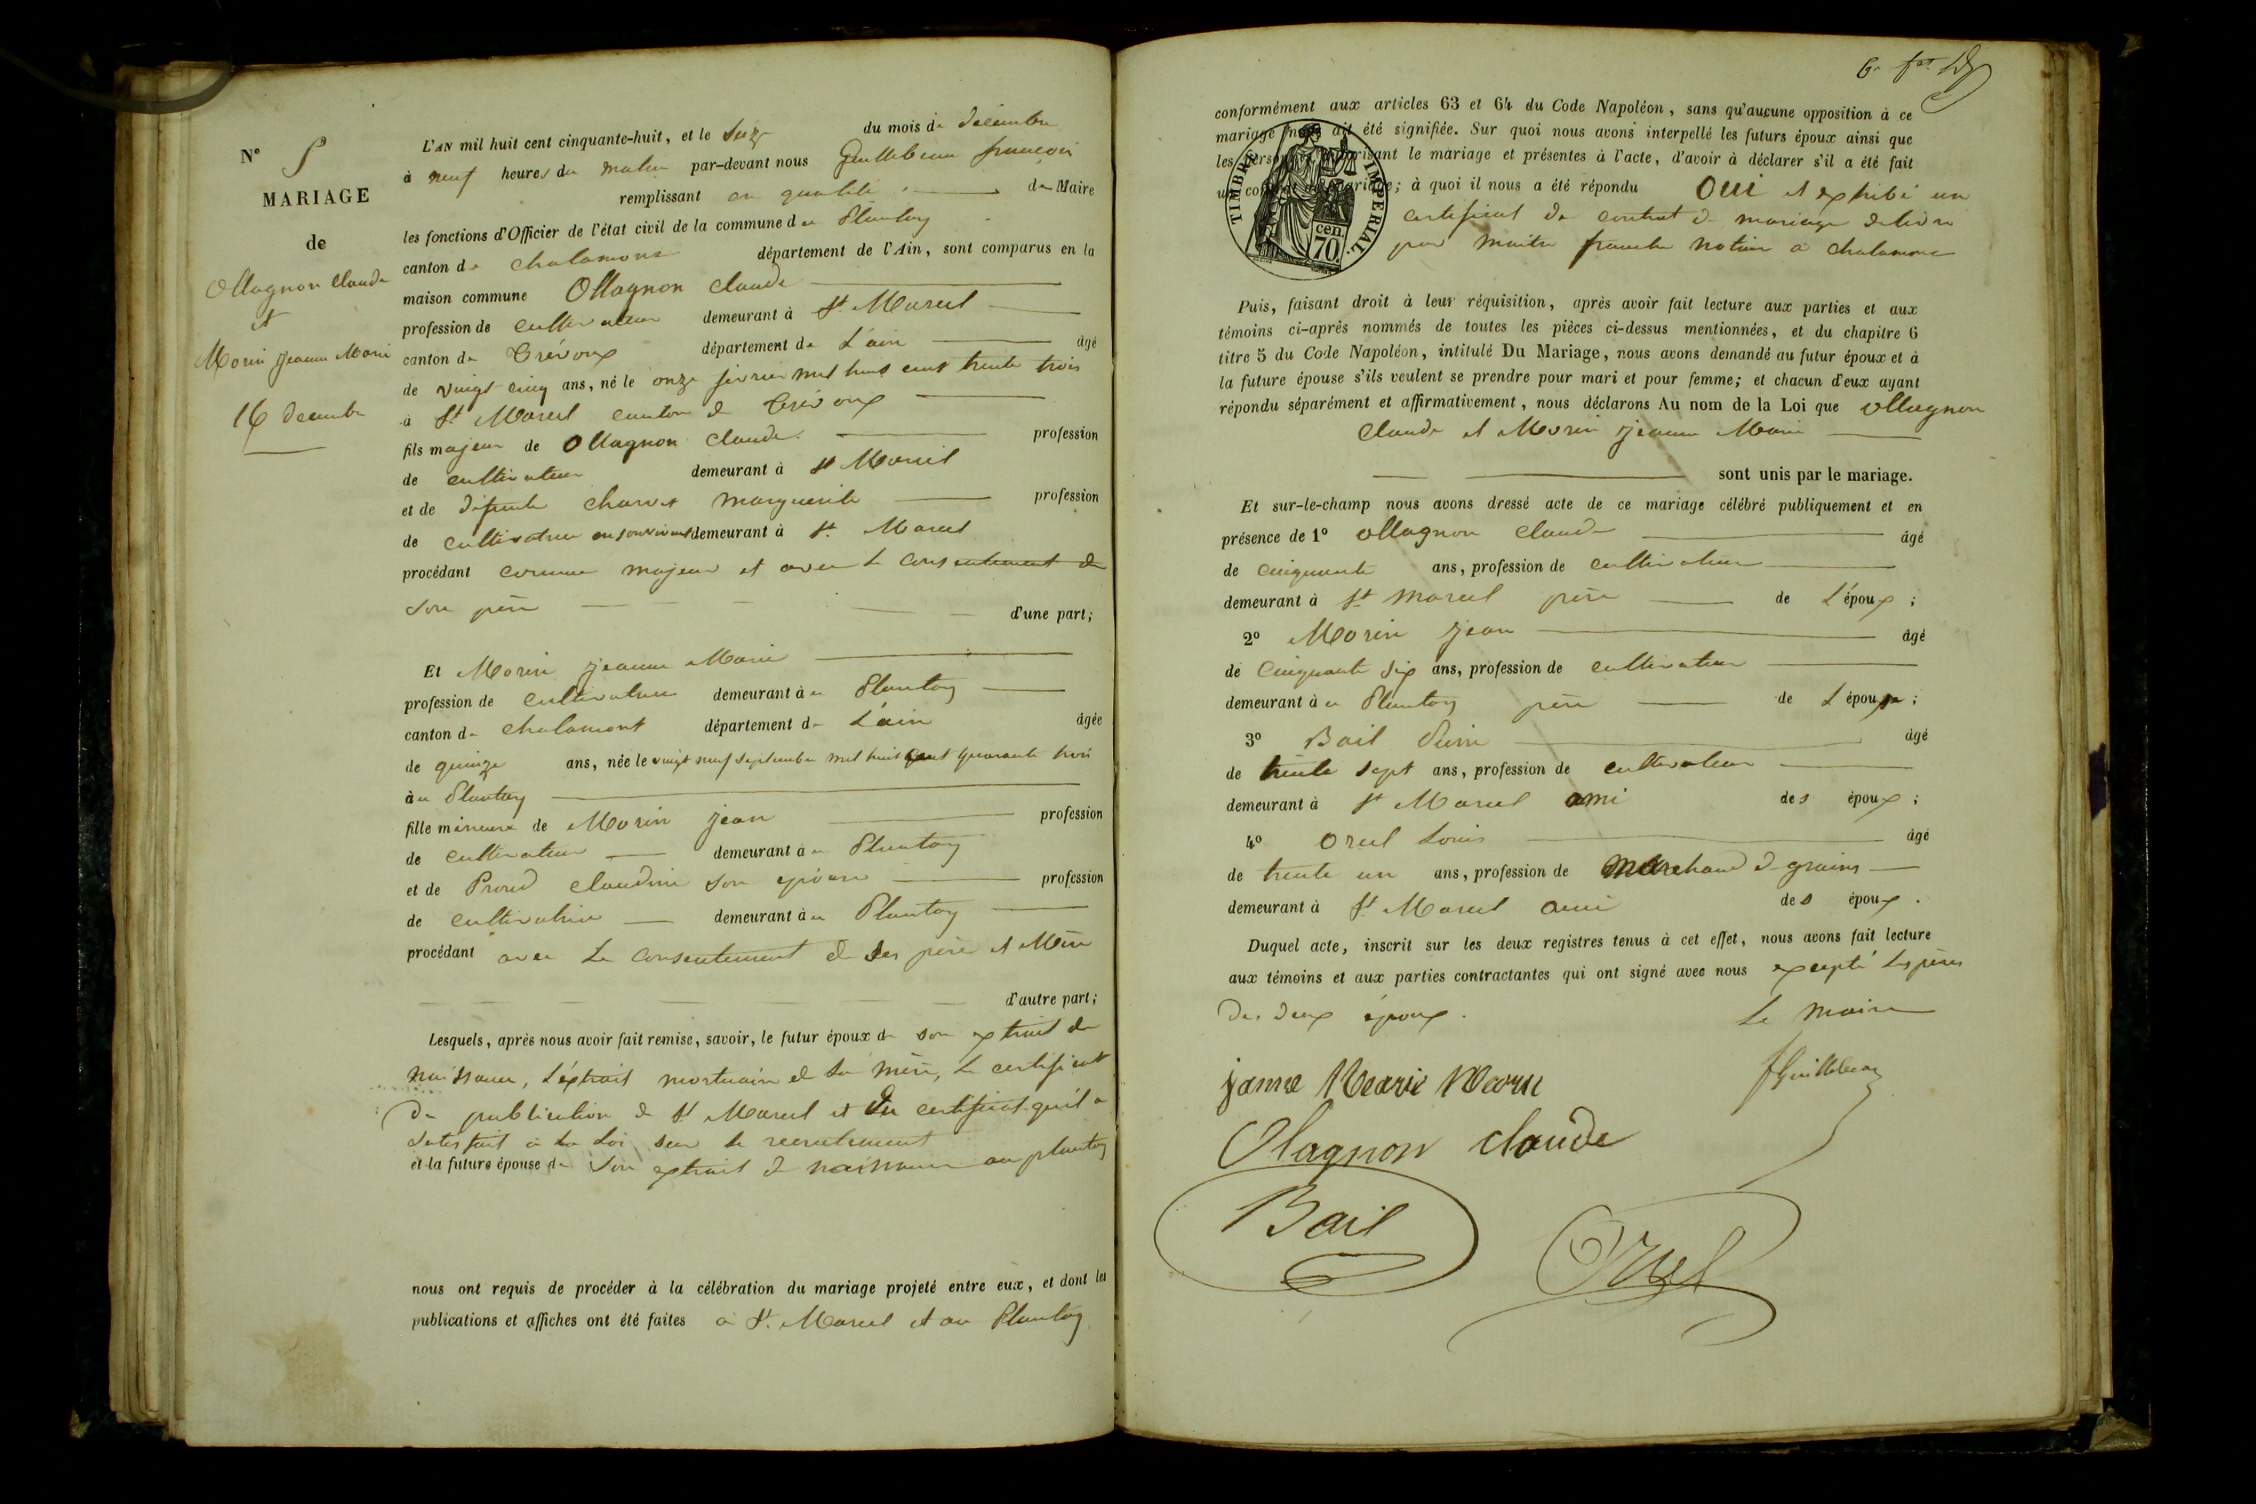 N° 5
MARIAGE
de
Ollagnon Claude
et
Morin jeanne Marie
16 decembre
L'AN mil huit cent cinquante-huit, et le Seize du mois de décembre
à neuf heures du matin par-devant nous Guillebeau françois
remplissant en qualité de Maire
les fonctions d'Officier de l'état civil de la commune du Plantay
canton de chalamont département de l'Ain, sont comparus en la
maison commune Ollagnon Claude
profession de cultivateur demeurant à St Marcel
canton de Trévoux département de L'ain âgé
de vingt cinq ans, né le onze fevrier mil huit cent trente trois
à St Marcel canton de Trévoux
fils majeur de Ollagnon Claude profession
de cultivateur demeurant à St Marcel
et de défunte charvet Marguerite profession
de cultivatrice en son vivant demeurant à St Marcel
procédant comme majeur et avec le consentement de
son père d'une part;
Et Morin jeanne Marie
profession de cultivatrice demeurant à u Plantay
canton de chalamont département de L'ain âgée
de quinze ans, née le vingt neuf septembre mil huit cent quarante trois
à u Plantay
fille mineure de Morin jean profession
de cultivateur demeurant à u Plantay
et de Proud claudine son épouse profession
de cultivatrice demeurant à u Plantay
procédant avec le consentement de ses père et Mère
d'autre part;
Lesquels, après nous avoir fait remise, savoir, le futur époux de son extrait de
naissance, L'éxtrait mortuaire de sa mère, le certificat
de publication de St Marcel et du certificat qu'il a
satisfait à la Loi sur le recrutement
et la future épouse de son extrait de naissance au plantay
nous ont requis de procéder à la célébration du mariage projeté entre eux, et dont les
publications et affiches ont été faites à St Marcel et au Plantay
conformément aux articles 63 et 64 du Code Napoléon, sans qu'aucune opposition à ce
mariage nous ait été signifiée. Sur quoi nous avons interpellé les futurs époux ainsi que
les personnes autorisant le mariage et présentes à l'acte, d'avoir à déclarer s'il a été fait
un contrat de mariage; à quoi il nous a été répondu Oui et exhibé un
certificat de contrat de mariage délivré
par Maitre notaire à chalamont
TIMBRE IMPÉRIAL.
70. cen.
Puis, faisant droit à leur réquisition, après avoir fait lecture aux parties et aux
témoins ci-après nommés de toutes les pièces ci-dessus mentionnées, et du chapitre 6
titre 5 du Code Napoléon, intitulé Du Mariage, nous avons demandé au futur époux et à
la future épouse s'ils veulent se prendre pour mari et pour femme; et chacun d'eux ayant
répondu séparément et affirmativement, nous déclarons Au nom de la Loi que Ollagnon
Claude et Morin jeanne Marie
sont unis par le mariage.
Et sur-le-champ nous avons dressé acte de ce mariage célébré publiquement et en
présence de 1° Ollagnon Claude âgé
de cinquante ans, profession de cultivateur
demeurant à St Marcel père de L'époux;
2° Morin jean âgé
de cinquante six ans, profession de cultivateur
demeurant à u Plantay père de L'épouse;
3° Bail Pierre âgé
de trente sept ans, profession de cultivateur
demeurant à St Marcel ami des époux;
4° Orsel Louis âgé
de trente un ans, profession de Marchand de grains
demeurant à St Marcel ami des époux.
Duquel acte, inscrit sur les deux registres tenus à cet effet, nous avons fait lecture
aux témoins et aux parties contractantes qui ont signé avec nous excepté les pères
des deux époux.
Le Maire
janne Marie Morin
fGuillebeau
Olagnon claude
Bail
Orsel